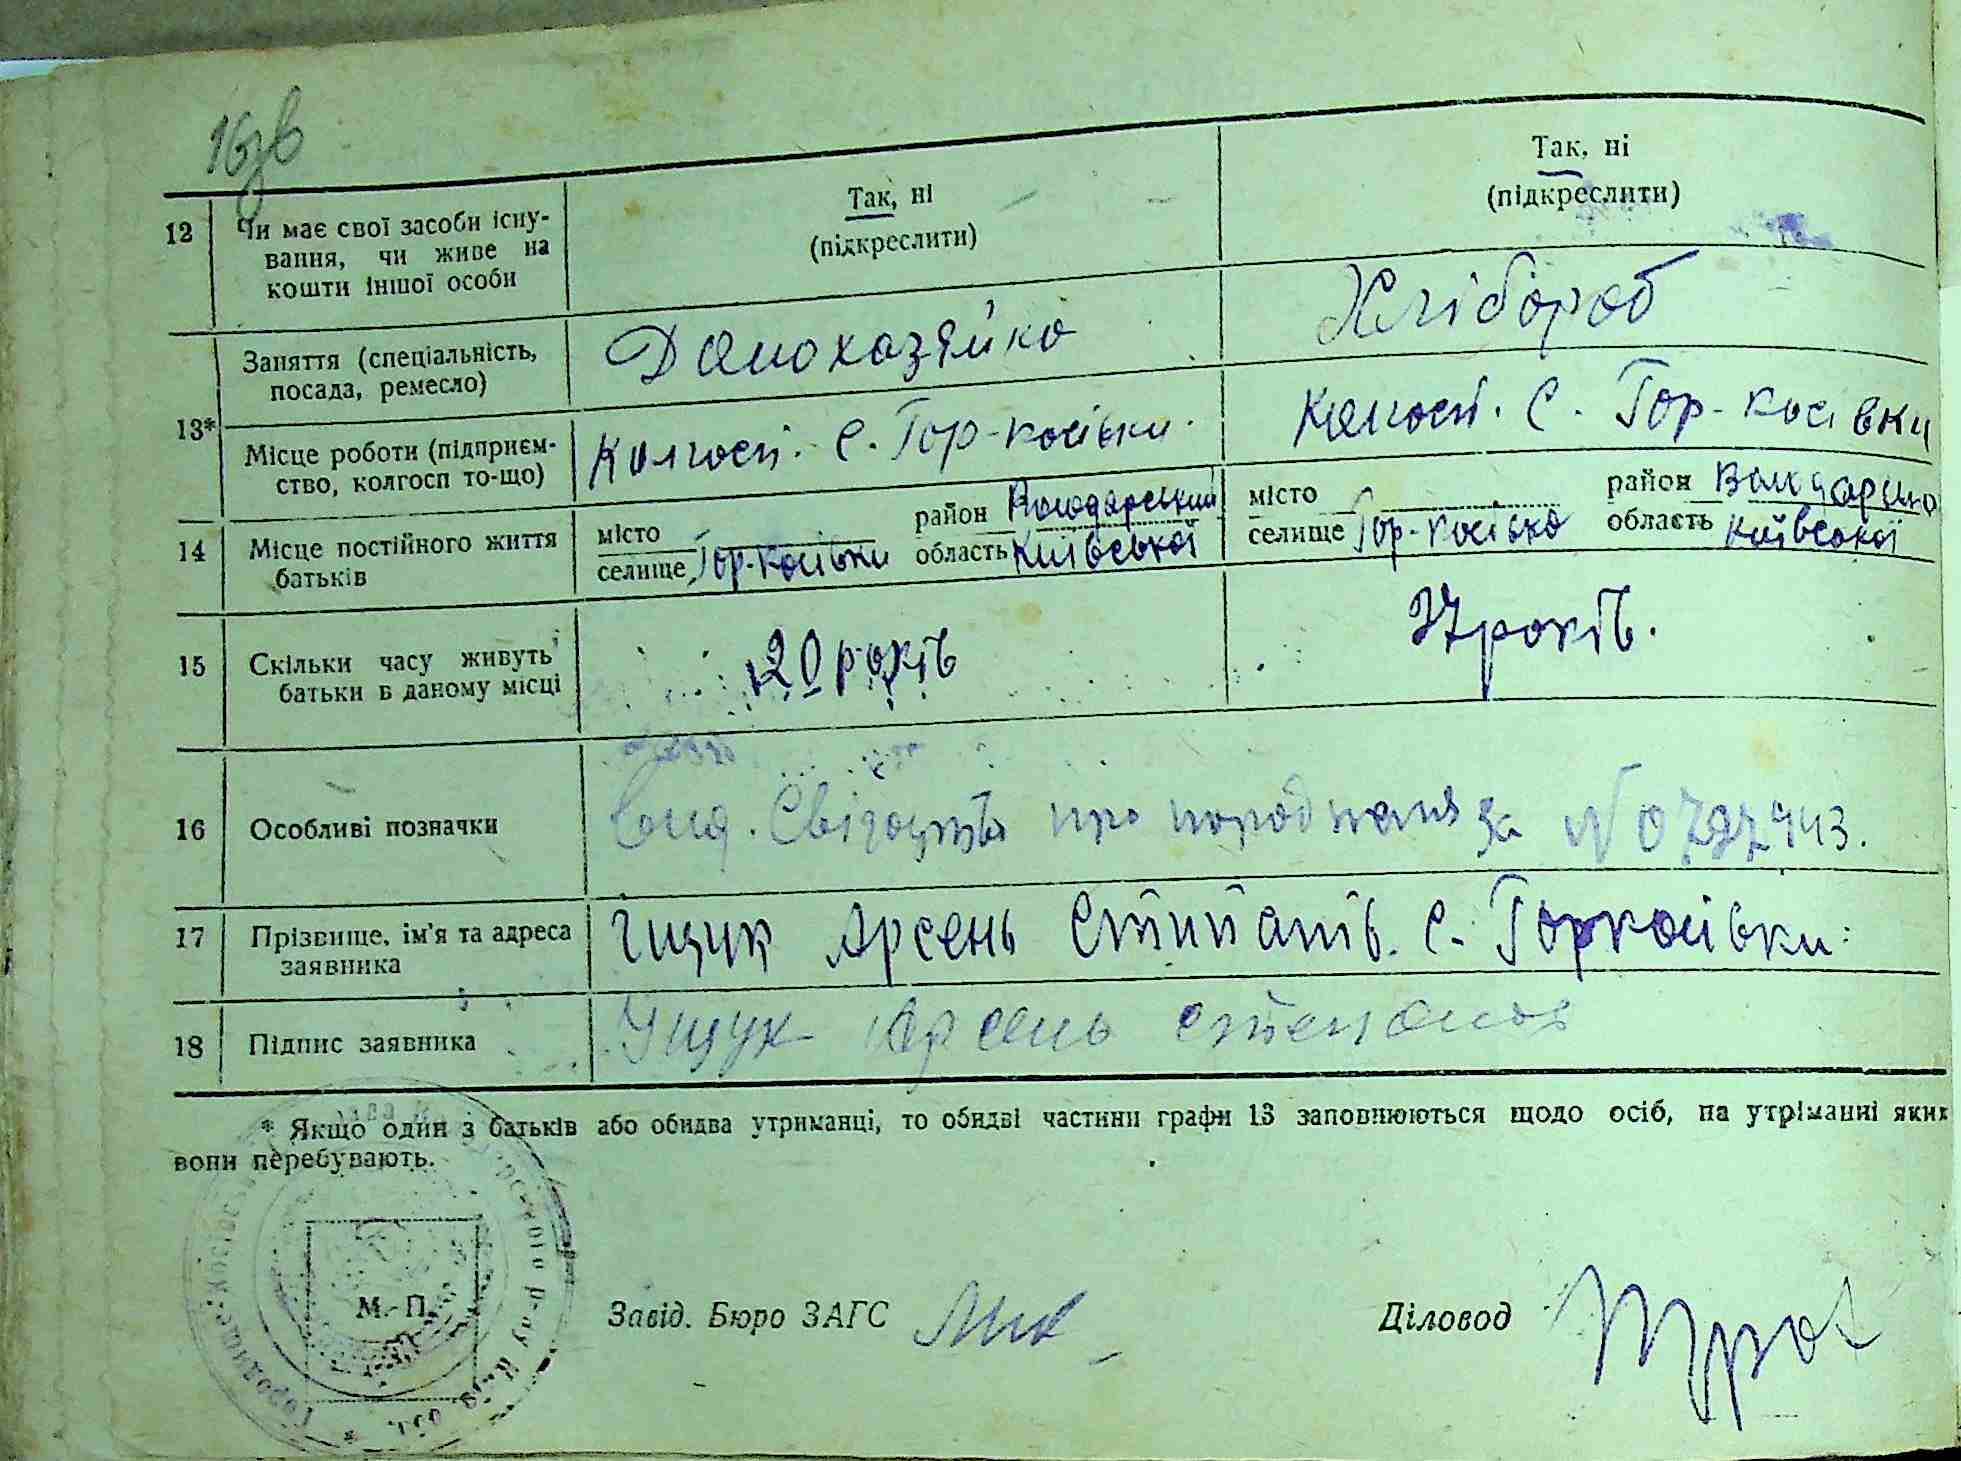 16зв
12 Чи має свої засоби існу-
вання, чи живе на
кошти іншої особи
Так, ні
(підкреслити)
Так, ні
(підкреслити)
13*
Заняття (спеціальність,
посада, ремесло)
Домохазяйка
Хлібороб
Місце роботи (підприєм-
ство, колгосп то-що)
Колгосп. С. Гор-косівки.
Колгосп. С. Гор-косівки
14 Місце постійного життя
батьків
місто
район Володарський
селище Гор-косівки область Київської
місто
район Володарсько
селище Гор-косівка область Київської
15 Скільки часу живуть
батьки в даному місці
20 років
37 років.
16 Особливі позначки
вид. Свідоцтво про народження за № 0797943.
17 Прізвище, ім'я та адреса
заявника
Іщук Арсень Степанів. с. Горкосівки
18 Підпис заявника
Іщук Арсень
* Якщо один з батьків або обидва утриманці, то обидві частини графи 13 заповнюються щодо осіб, на утриманні яких
вони перебувають.
М. П.
Завід. Бюро ЗАГС
Діловод